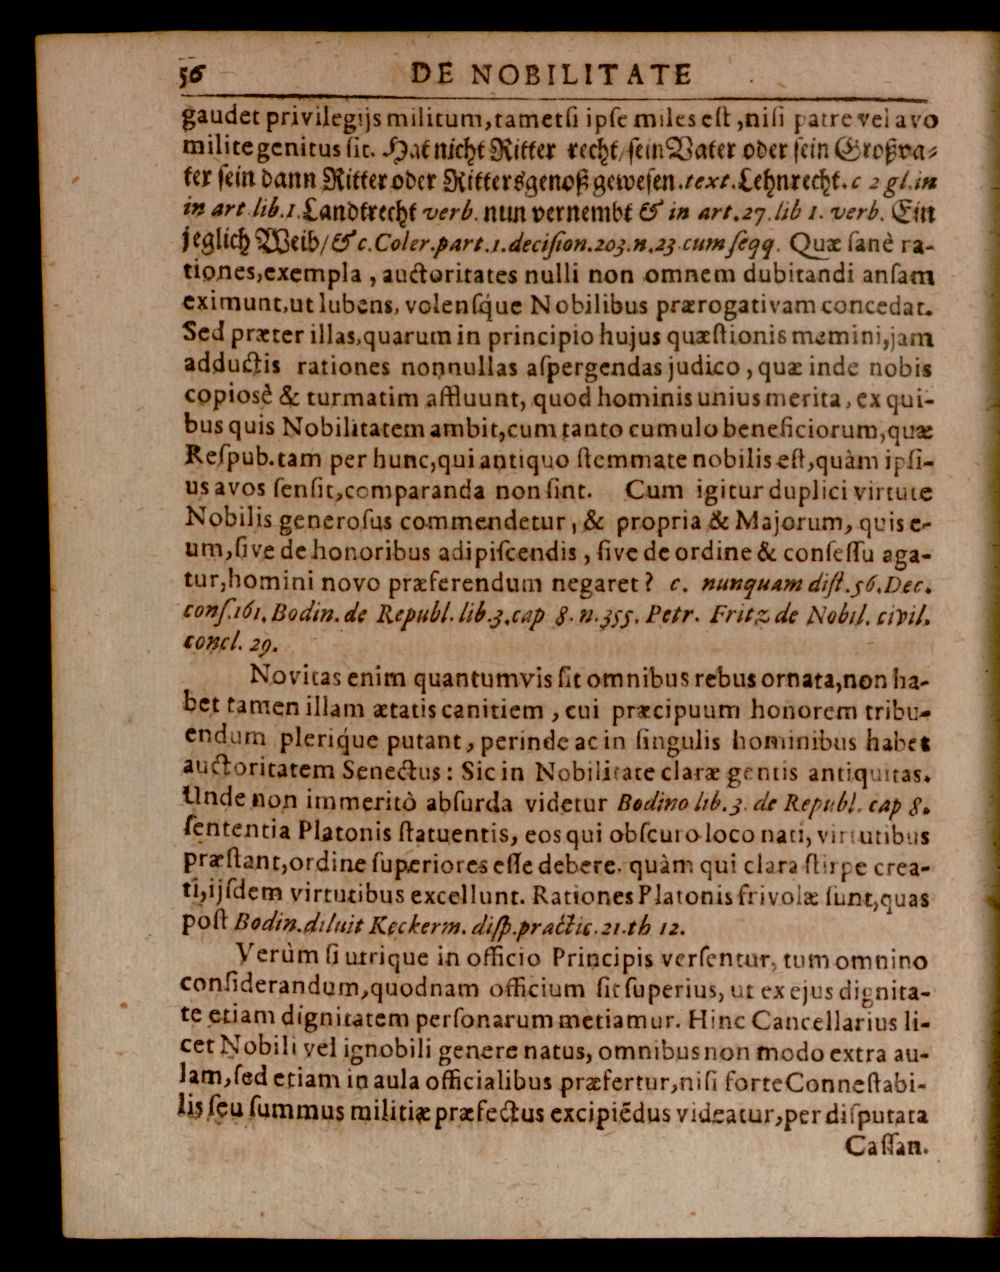 56 DE NOBILITATE
gaudet privilegijs militum, tametsi ipse miles est, nisi patre vel avo
milite genitus sit. Hat nicht Ritter recht/ sein Vater oder sein Großva-
ter sein dann Ritter oder Rittersgenoß gewesen. text. Lehnrecht. c 2 gl. in
in art lib. 1. Landtrecht verb. nun vernembt & in art. 27. lib 1. verb. Ein
jeglich Weib/ & c. Coler. part. 1. decision. 203. n. 23 cum seqq. Quæ sanè ra-
tiones, exempla, auctoritates nulli non omnem dubitandi ansam
eximunt, ut lubens, volensq́ue Nobilibus prærogativam concedat.
Sed præter illas, quarum in principio hujus quæstionis memini, jam
adductis rationes nonnullas aspergendas judico, quæ inde nobis
copiosè & turmatim affluunt, quod hominis unius merita, ex qui-
bus quis Nobilitatem ambit, cum tanto cumulo beneficiorum, quæ
Respub. tam per hunc, qui antiquo stemmate nobilis est, quàm ipsi-
us avos sensit, comparanda non sint. Cum igitur duplici virtute
Nobilis generosus commendetur, & propria & Majorum, quis e-
um, sive de honoribus adipiscendis, sive de ordine & consessu aga-
tur, homini novo præferendum negaret? c. nunquam dist. 56. Dec.
cons. 161. Bodin. de Republ. lib. 3. cap 8. n. 355. Petr. Fritz de Nobil. civil.
concl. 29.
Novitas enim quantumvis sit omnibus rebus ornata, non ha-
bet tamen illam ætatis canitiem, cui præcipuum honorem tribu-
endum pleriq́ue putant, perinde ac in singulis hominibus habet
auctoritatem Senectus: Sic in Nobilitate claræ gentis antiquitas.
Unde non immeritò absurda videtur Bodino lib. 3. de Republ. cap 8.
sententia Platonis statuentis, eos qui obscuro loco nati, virtutibus
præstant, ordine superiores esse debere, quàm qui clara stirpe crea-
ti, ijsdem virtutibus excellunt. Rationes Platonis frivolæ sunt, quas
post Bodin. diluit Keckerm. disp. practic. 21. th 12.
Verùm si utrique in officio Principis versentur, tum omnino
considerandum, quodnam officium sit superius, ut ex ejus dignita-
te etiam dignitatem personarum metiamur. Hinc Cancellarius li-
cet Nobili vel ignobili genere natus, omnibus non modo extra au-
lam, sed etiam in aula officialibus præfertur, nisi forte Connestabi-
lis seu summus militiæ præfectus excipiẽdus videatur, per disputata
Cassan.